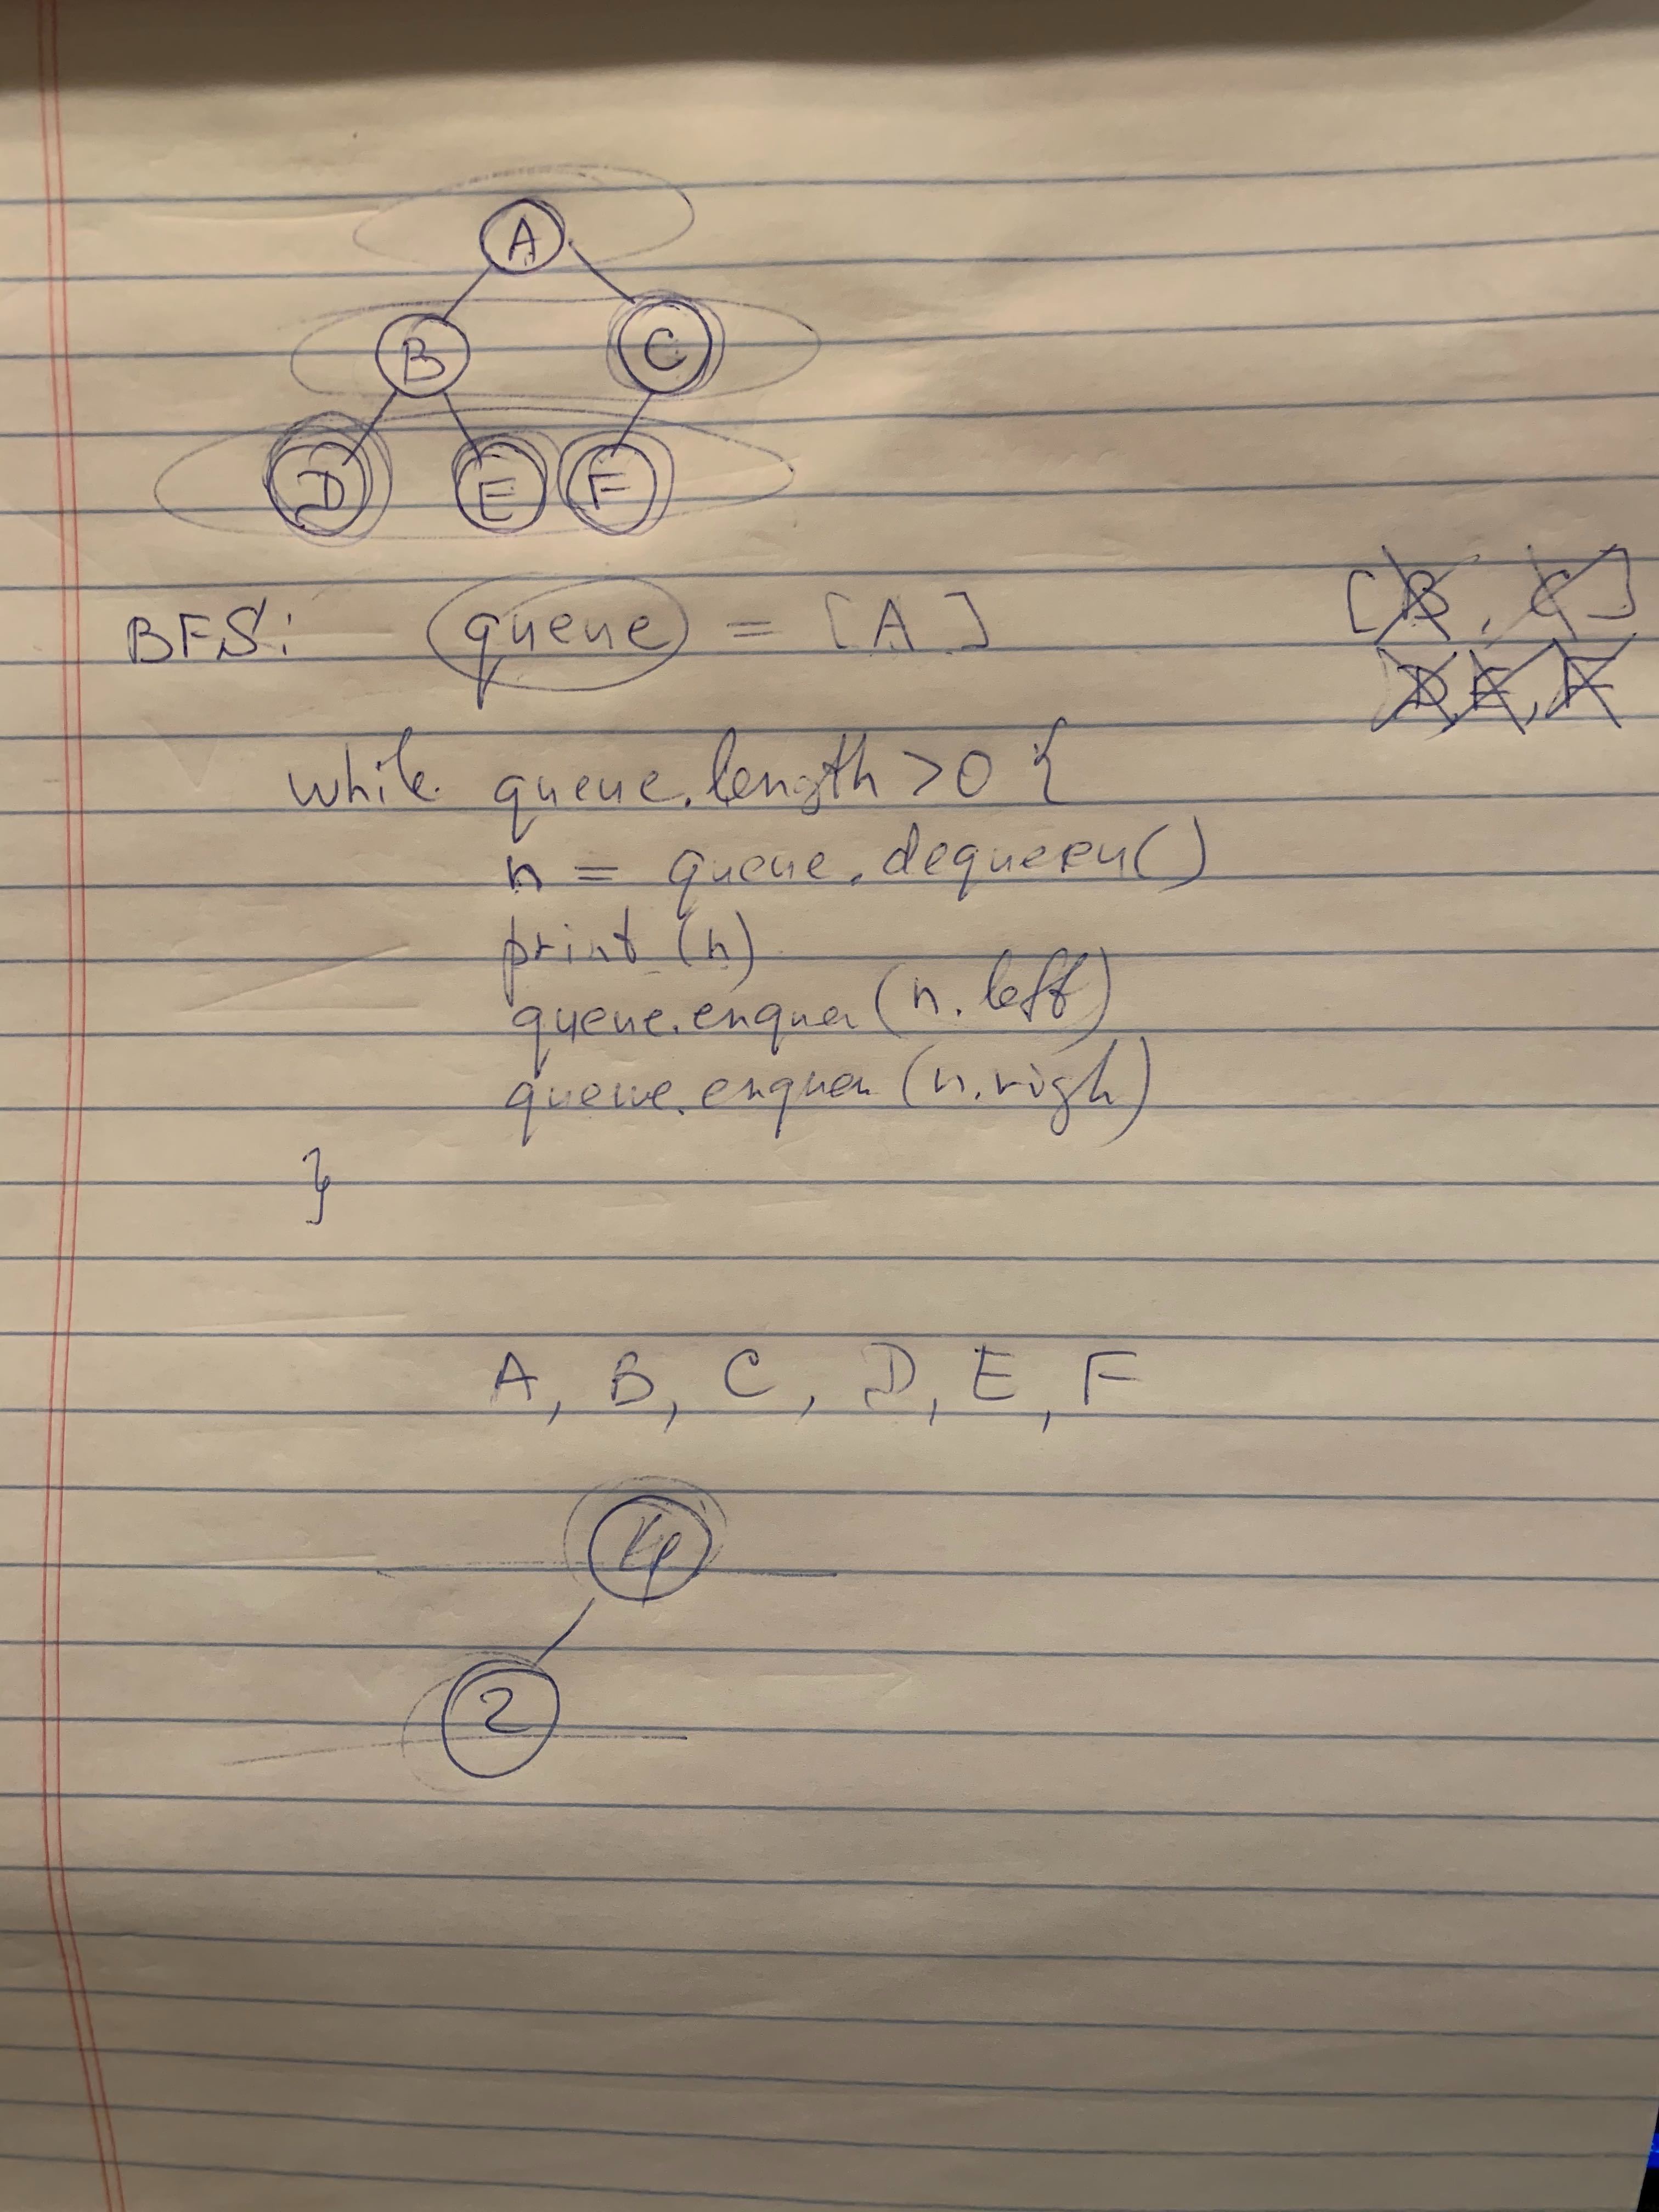 A
B C
D E F
BFS: queue = [A]
[B, C]
D, E, F
while queue.length > 0 {
n = queue.dequeeu()
print (n)
queue.enque (n.left)
queue.enque (n.righ)
}
A, B, C, D, E, F
2